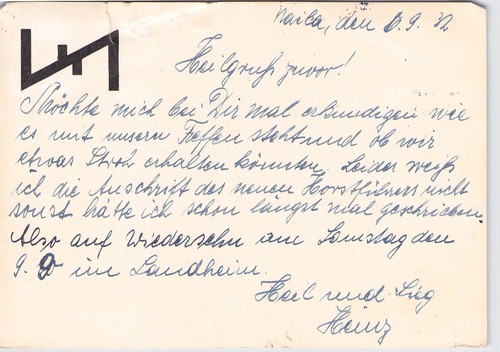 Naila, den 6.9.32
Heilgruß zuvor!
Möchte mich bei Dir mal erkundigen wie
es mit unserm Treffen steht und ob wir
etwas Stroh erhalten könnten. Leider weiß
ich die Anschrift des neuen Horstführers nicht
sonst hätte ich schon längst mal geschrieben.
Also auf Wiedersehn am Samstag den
9. 9 im Landheim.
Heil und Sieg
Heinz